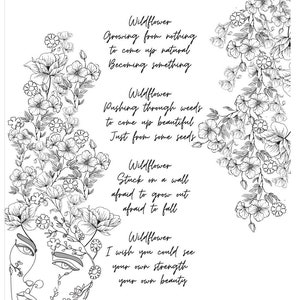 Wildflower
Growing from nothing
to come up natural
Becoming something
Wildflower
Pushing through weeds
to come up beautiful
Just from some seeds
Wildflower
Stuck in a wall
afraid to grow out
afraid to fall
Wildflower
I wish you could see
your own strength
your own beauty